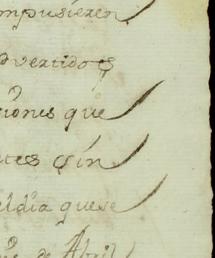 mpusieren
dvertidos
ciones que
ntes sin
eldia que se
de Abril